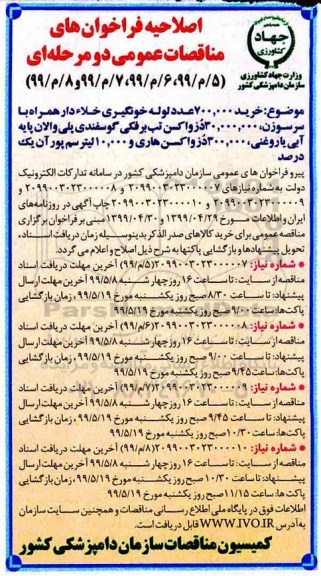 اصلاحیه فراخوان های
مناقصات عمومی دو مرحله‌ای
(۵/م/۹۹، ۶/م/۹۹، ۷/م/۹۹ و ۸/م/۹۹)
جهاد
کشاورزی
وزارت جهاد کشاورزی
سازمان دامپزشکی کشور
موضوع: خرید ۷۰۰,۰۰۰ عدد لوله خونگیری خلاءدار همراه با
سرسوزن، ۳۰,۰۰۰,۰۰۰ دُز واکسن تب برفکی گوسفندی پلی والان پایه
آبی یا روغنی، ۳۰۰,۰۰۰ دُز واکسن هاری و ۱۰,۰۰۰ لیتر سم پورآن یک
درصد
پیرو فراخوان های عمومی سازمان دامپزشکی کشور در سامانه تدارکات الکترونیک
دولت به شماره نیازهای ۲۰۹۹۰۰۳۰۲۳۰۰۰۰۰۷ و ۲۰۹۹۰۰۳۰۲۳۰۰۰۰۰۸ و
۲۰۹۹۰۰۳۰۲۳۰۰۰۰۰۹ و ۲۰۹۹۰۰۳۰۲۳۰۰۰۰۱۰ چاپ آگهی در روزنامه‌های
ایران و اطلاعات مورخ ۱۳۹۹/۰۴/۲۹ و ۱۳۹۹/۰۴/۳۰ مبنی بر فراخوان برگزاری
مناقصه عمومی برای خرید کالاهای صدرالذکر بدینوسیله زمان دریافت اسناد،
تحویل پیشنهادها و بازگشایی پاکتها به شرح ذیل اصلاح و اعلام می گردد.
● شماره نیاز: ۲۰۹۹۰۰۳۰۲۳۰۰۰۰۰۷ (۵/م/۹۹) آخرین مهلت دریافت اسناد
مناقصه از سایت: تا ساعت ۱۶ روز چهارشنبه ۹۹/۵/۸ آخرین مهلت ارسال
پیشنهاد: تا ساعت ۸/۳۰ صبح روز یکشنبه مورخ ۹۹/۵/۱۹، زمان بازگشایی
پاکت‌ها: ساعت ۹/۰۰ صبح روز یکشنبه مورخ ۹۹/۵/۱۹
● شماره نیاز: ۲۰۹۹۰۰۳۰۲۳۰۰۰۰۰۸ (۶/م/۹۹) آخرین مهلت دریافت اسناد
مناقصه از سایت: تا ساعت ۱۶ روز چهارشنبه ۹۹/۵/۸ آخرین مهلت ارسال
پیشنهاد: تا ساعت ۹/۰۰ صبح روز یکشنبه مورخ ۹۹/۵/۱۹، زمان بازگشایی
پاکت‌ها: ساعت ۹/۴۵ صبح روز یکشنبه مورخ ۹۹/۵/۱۹
● شماره نیاز: ۲۰۹۹۰۰۳۰۲۳۰۰۰۰۰۹ (۷/م/۹۹) آخرین مهلت دریافت اسناد
مناقصه از سایت: تا ساعت ۱۶ روز چهارشنبه ۹۹/۵/۸ آخرین مهلت ارسال
پیشنهاد: تا ساعت ۹/۴۵ صبح روز یکشنبه مورخ ۹۹/۵/۱۹، زمان بازگشایی
پاکت‌ها: ساعت ۱۰/۳۰ صبح روز یکشنبه مورخ ۹۹/۵/۱۹
● شماره نیاز: ۲۰۹۹۰۰۳۰۲۳۰۰۰۰۱۰ (۸/م/۹۹) آخرین مهلت دریافت اسناد
مناقصه از سایت: تا ساعت ۱۶ روز چهارشنبه ۹۹/۵/۸ آخرین مهلت ارسال
پیشنهاد: تا ساعت ۱۰/۳۰ صبح روز یکشنبه مورخ ۹۹/۵/۱۹، زمان بازگشایی
پاکت‌ها: ساعت ۱۱/۱۵ صبح روز یکشنبه مورخ ۹۹/۵/۱۹
اطلاعات فوق در پایگاه ملی اطلاع رسانی مناقصات و همچنین سایت سازمان
به آدرس WWW.IVO.IR قابل دریافت است.
کمیسیون مناقصات سازمان دامپزشکی کشور